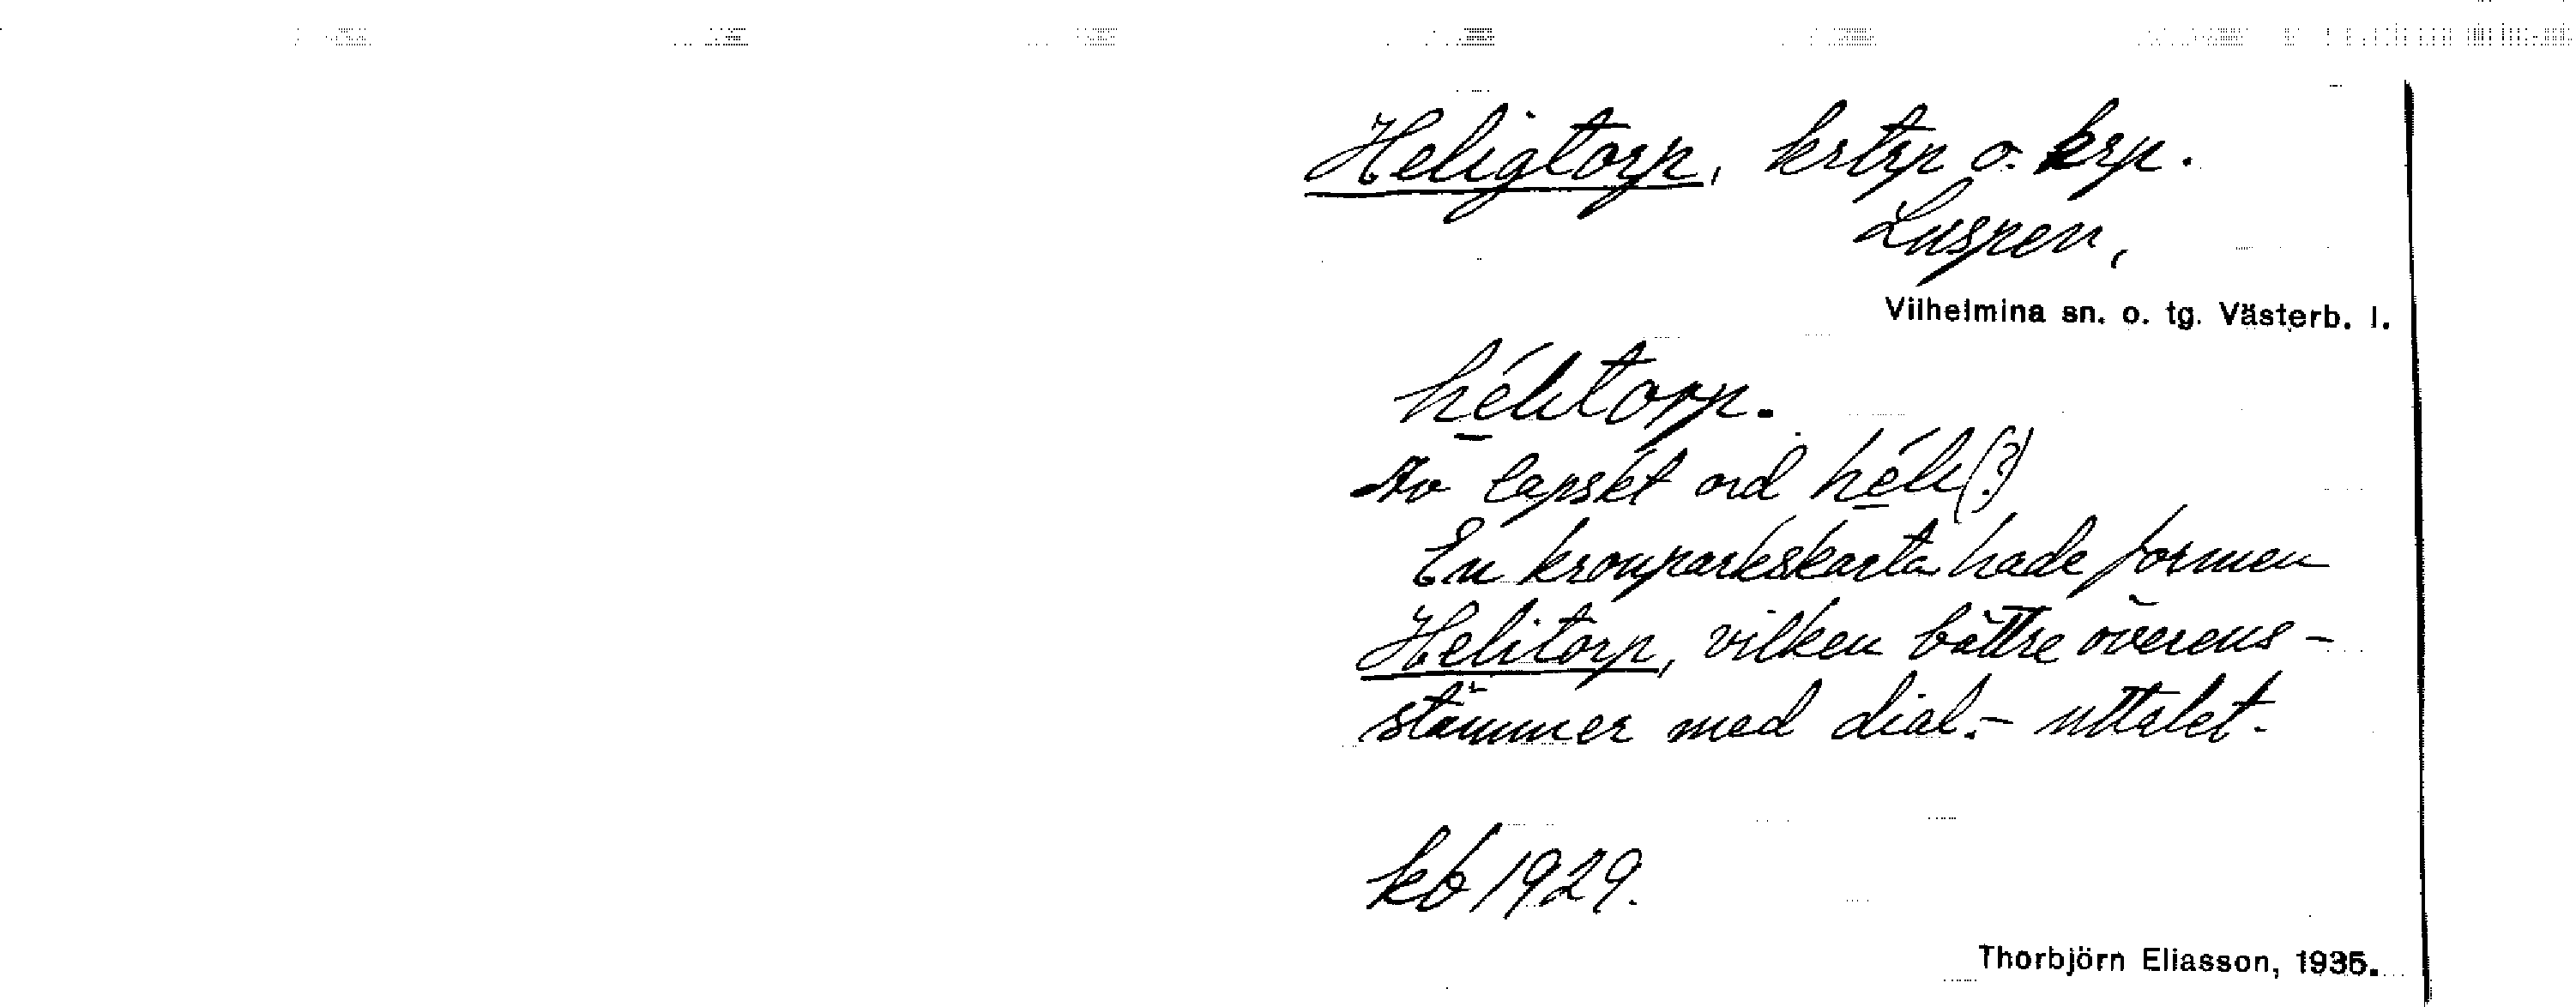 Heligtorp, krtrp o. krp.
Luspen,
Vilhelmina sn. o. tg. Västerb. l.
hélıtorp.
Av lapskt ord hélı(?)
En kronparkskarta hade formen
Helitorp, vilken bättre överens-
stämmer med dial.- uttalet.
kb 1929.
Thorbjörn Eliasson, 1935.